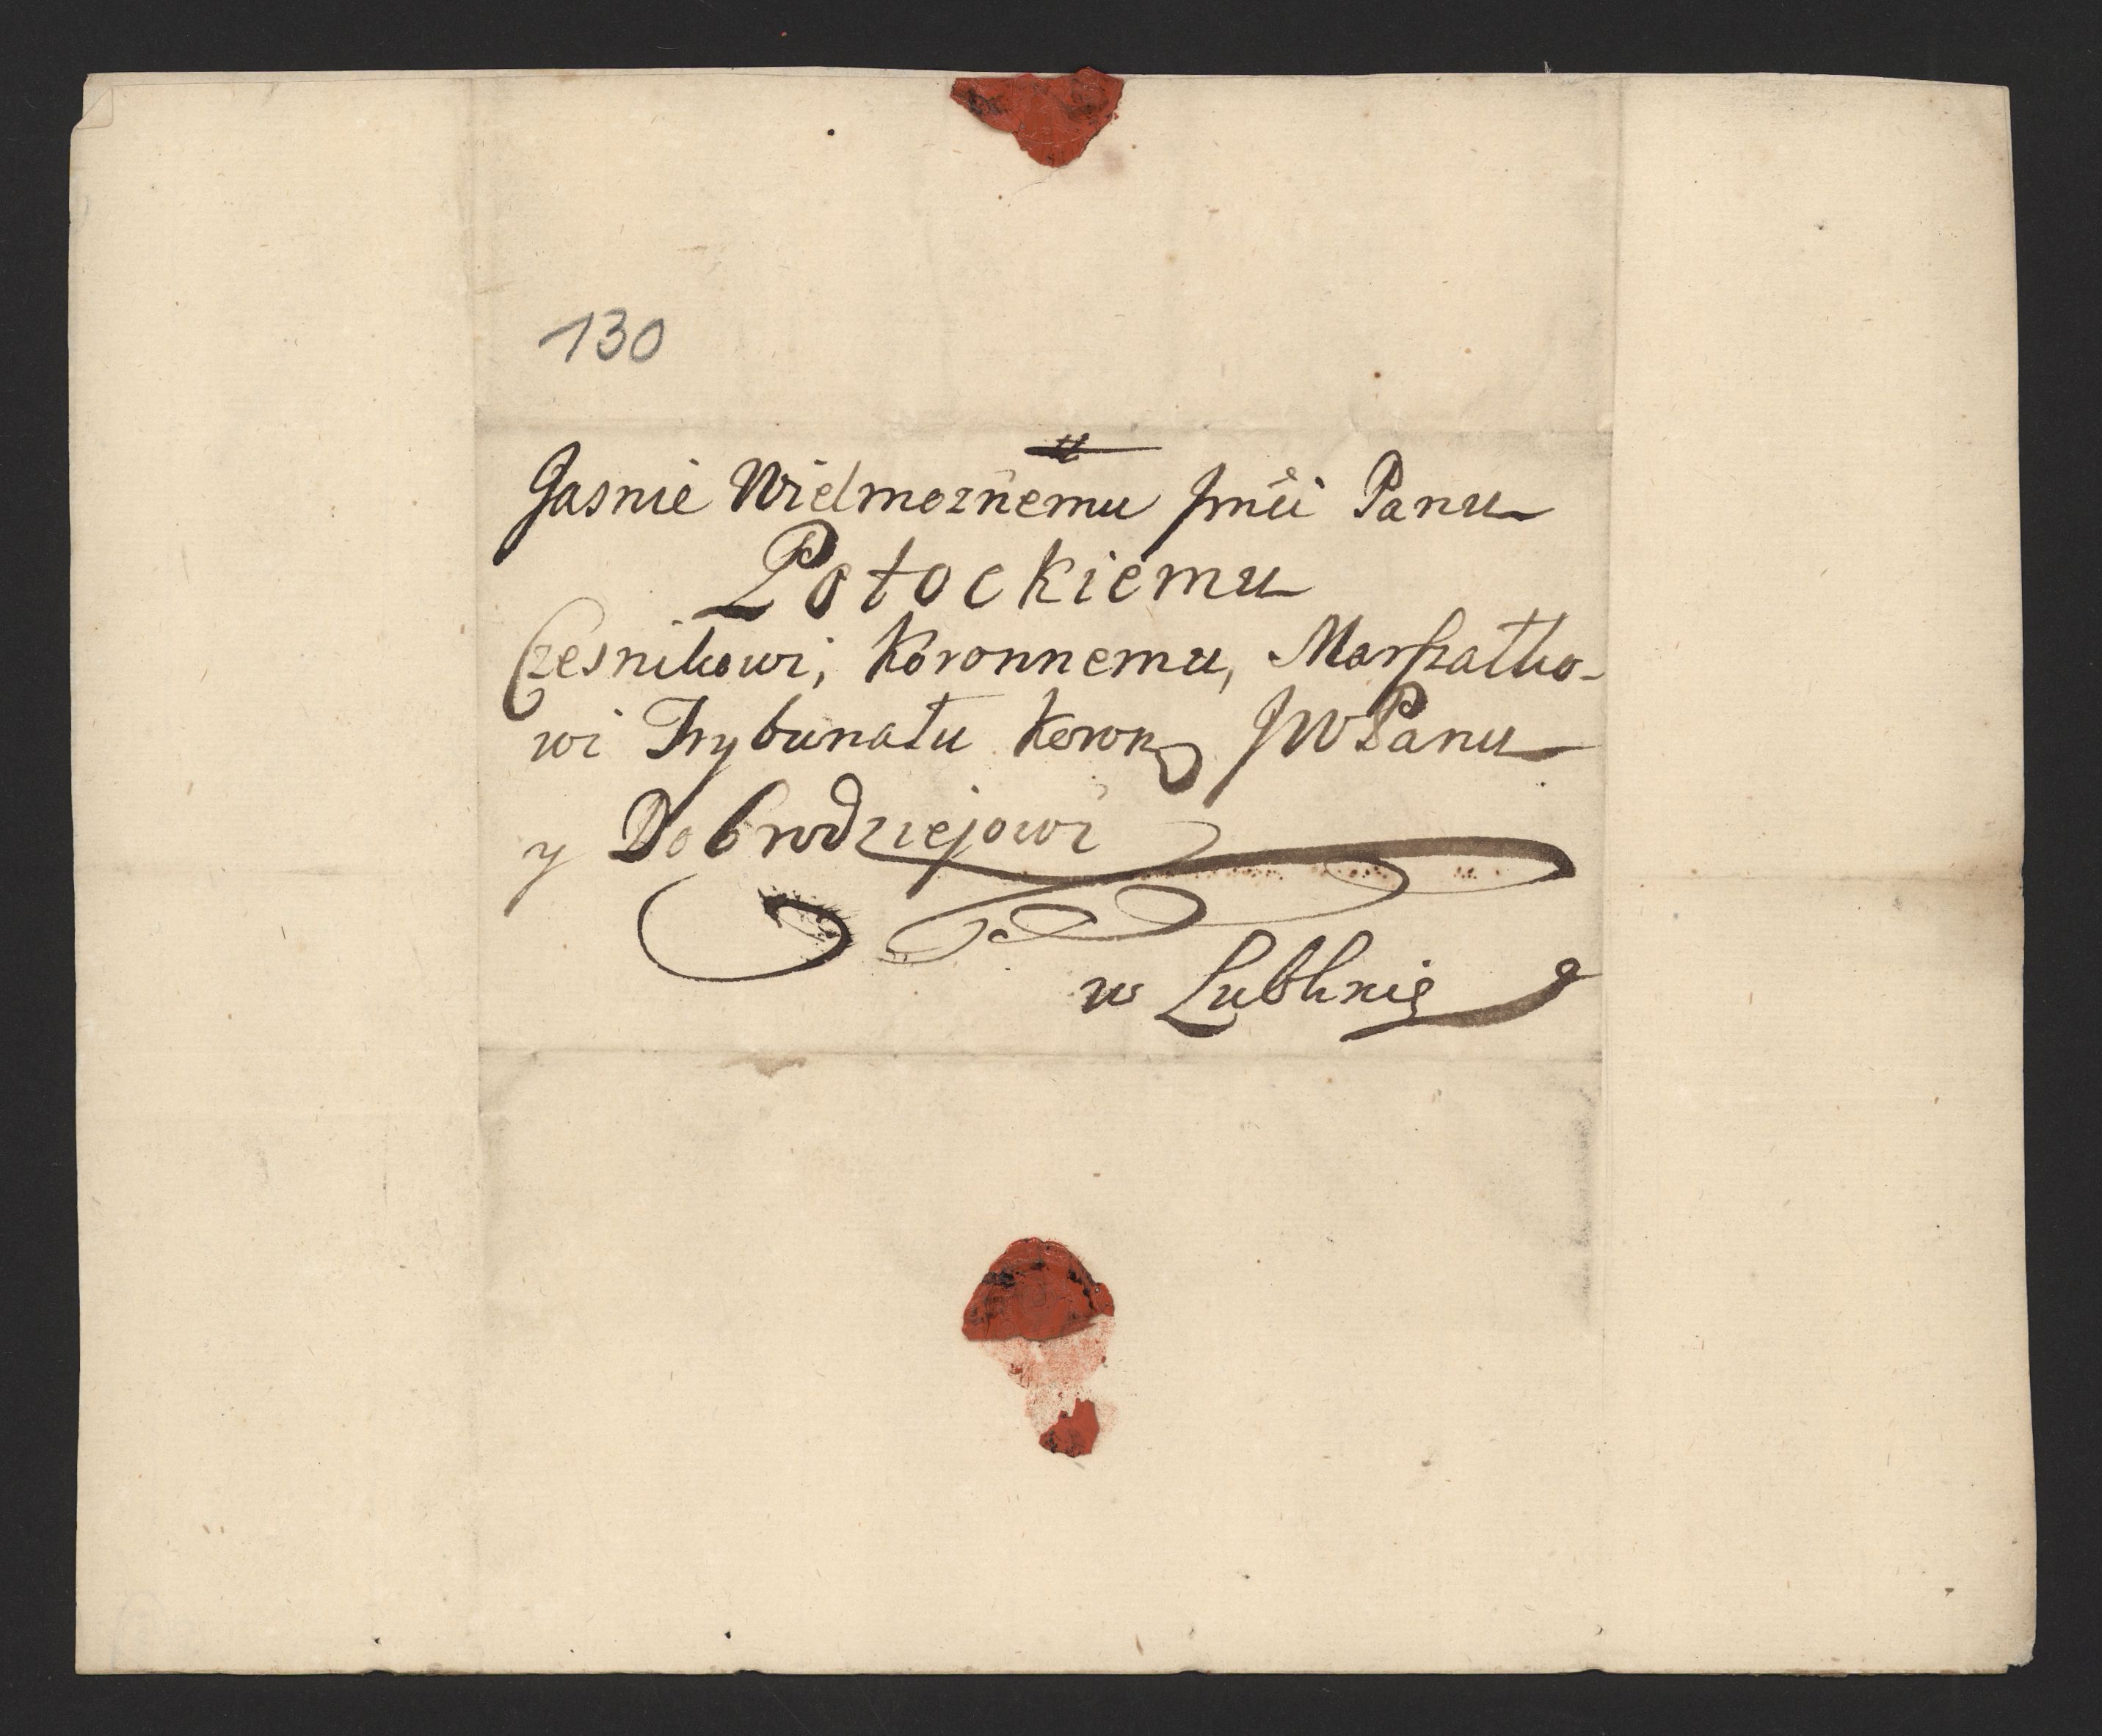 130
Jasnie Wielmoznemu Jmći Panu
Potockiemu
Czesnikowi, Koronnemu, Marszałko-
wi Trybunału Koron JWPanu
y Dobrodziejowi
w Lublinie